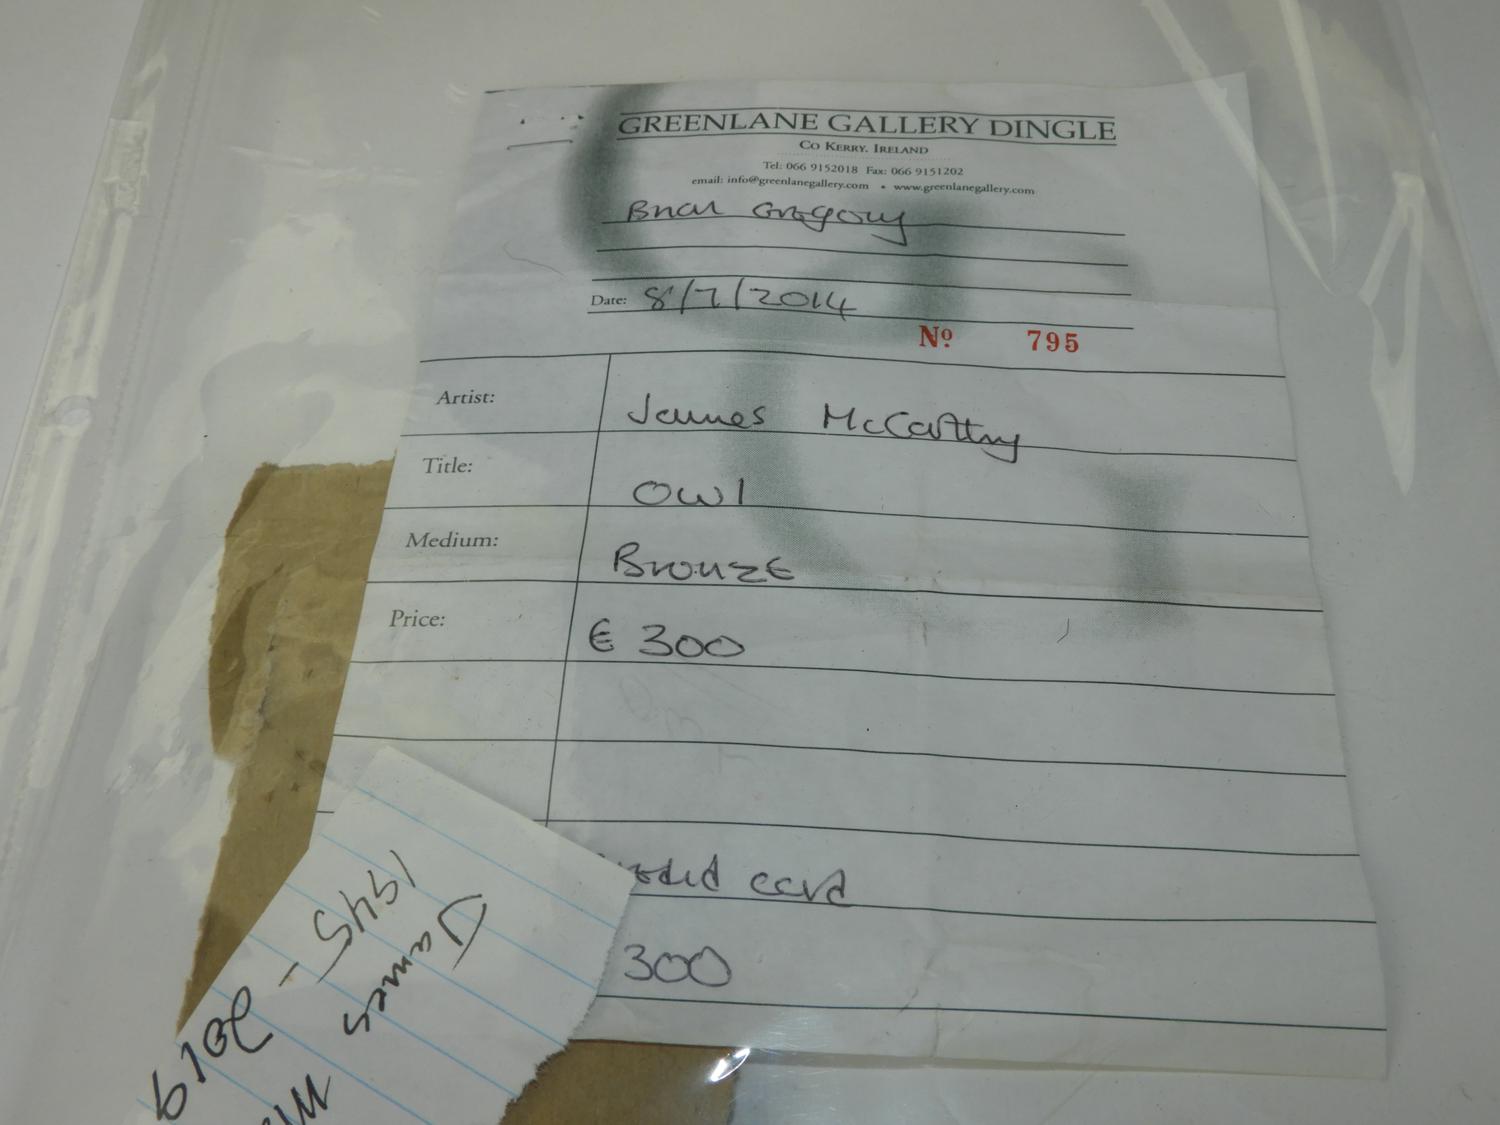 GREENLANE GALLERY DINGLE
CO KERRY. IRELAND
Tel: 066 9152018 Fax: 066 9151202
email: info@greenlanegallery.com • www.greenlanegallery.com
Brian Gregory
Date: 8/7/2014
No. 795
Artist: James McCarthy
Title: Owl
Medium: Bronze
Price: € 300
card
300
James
1945 - 2019